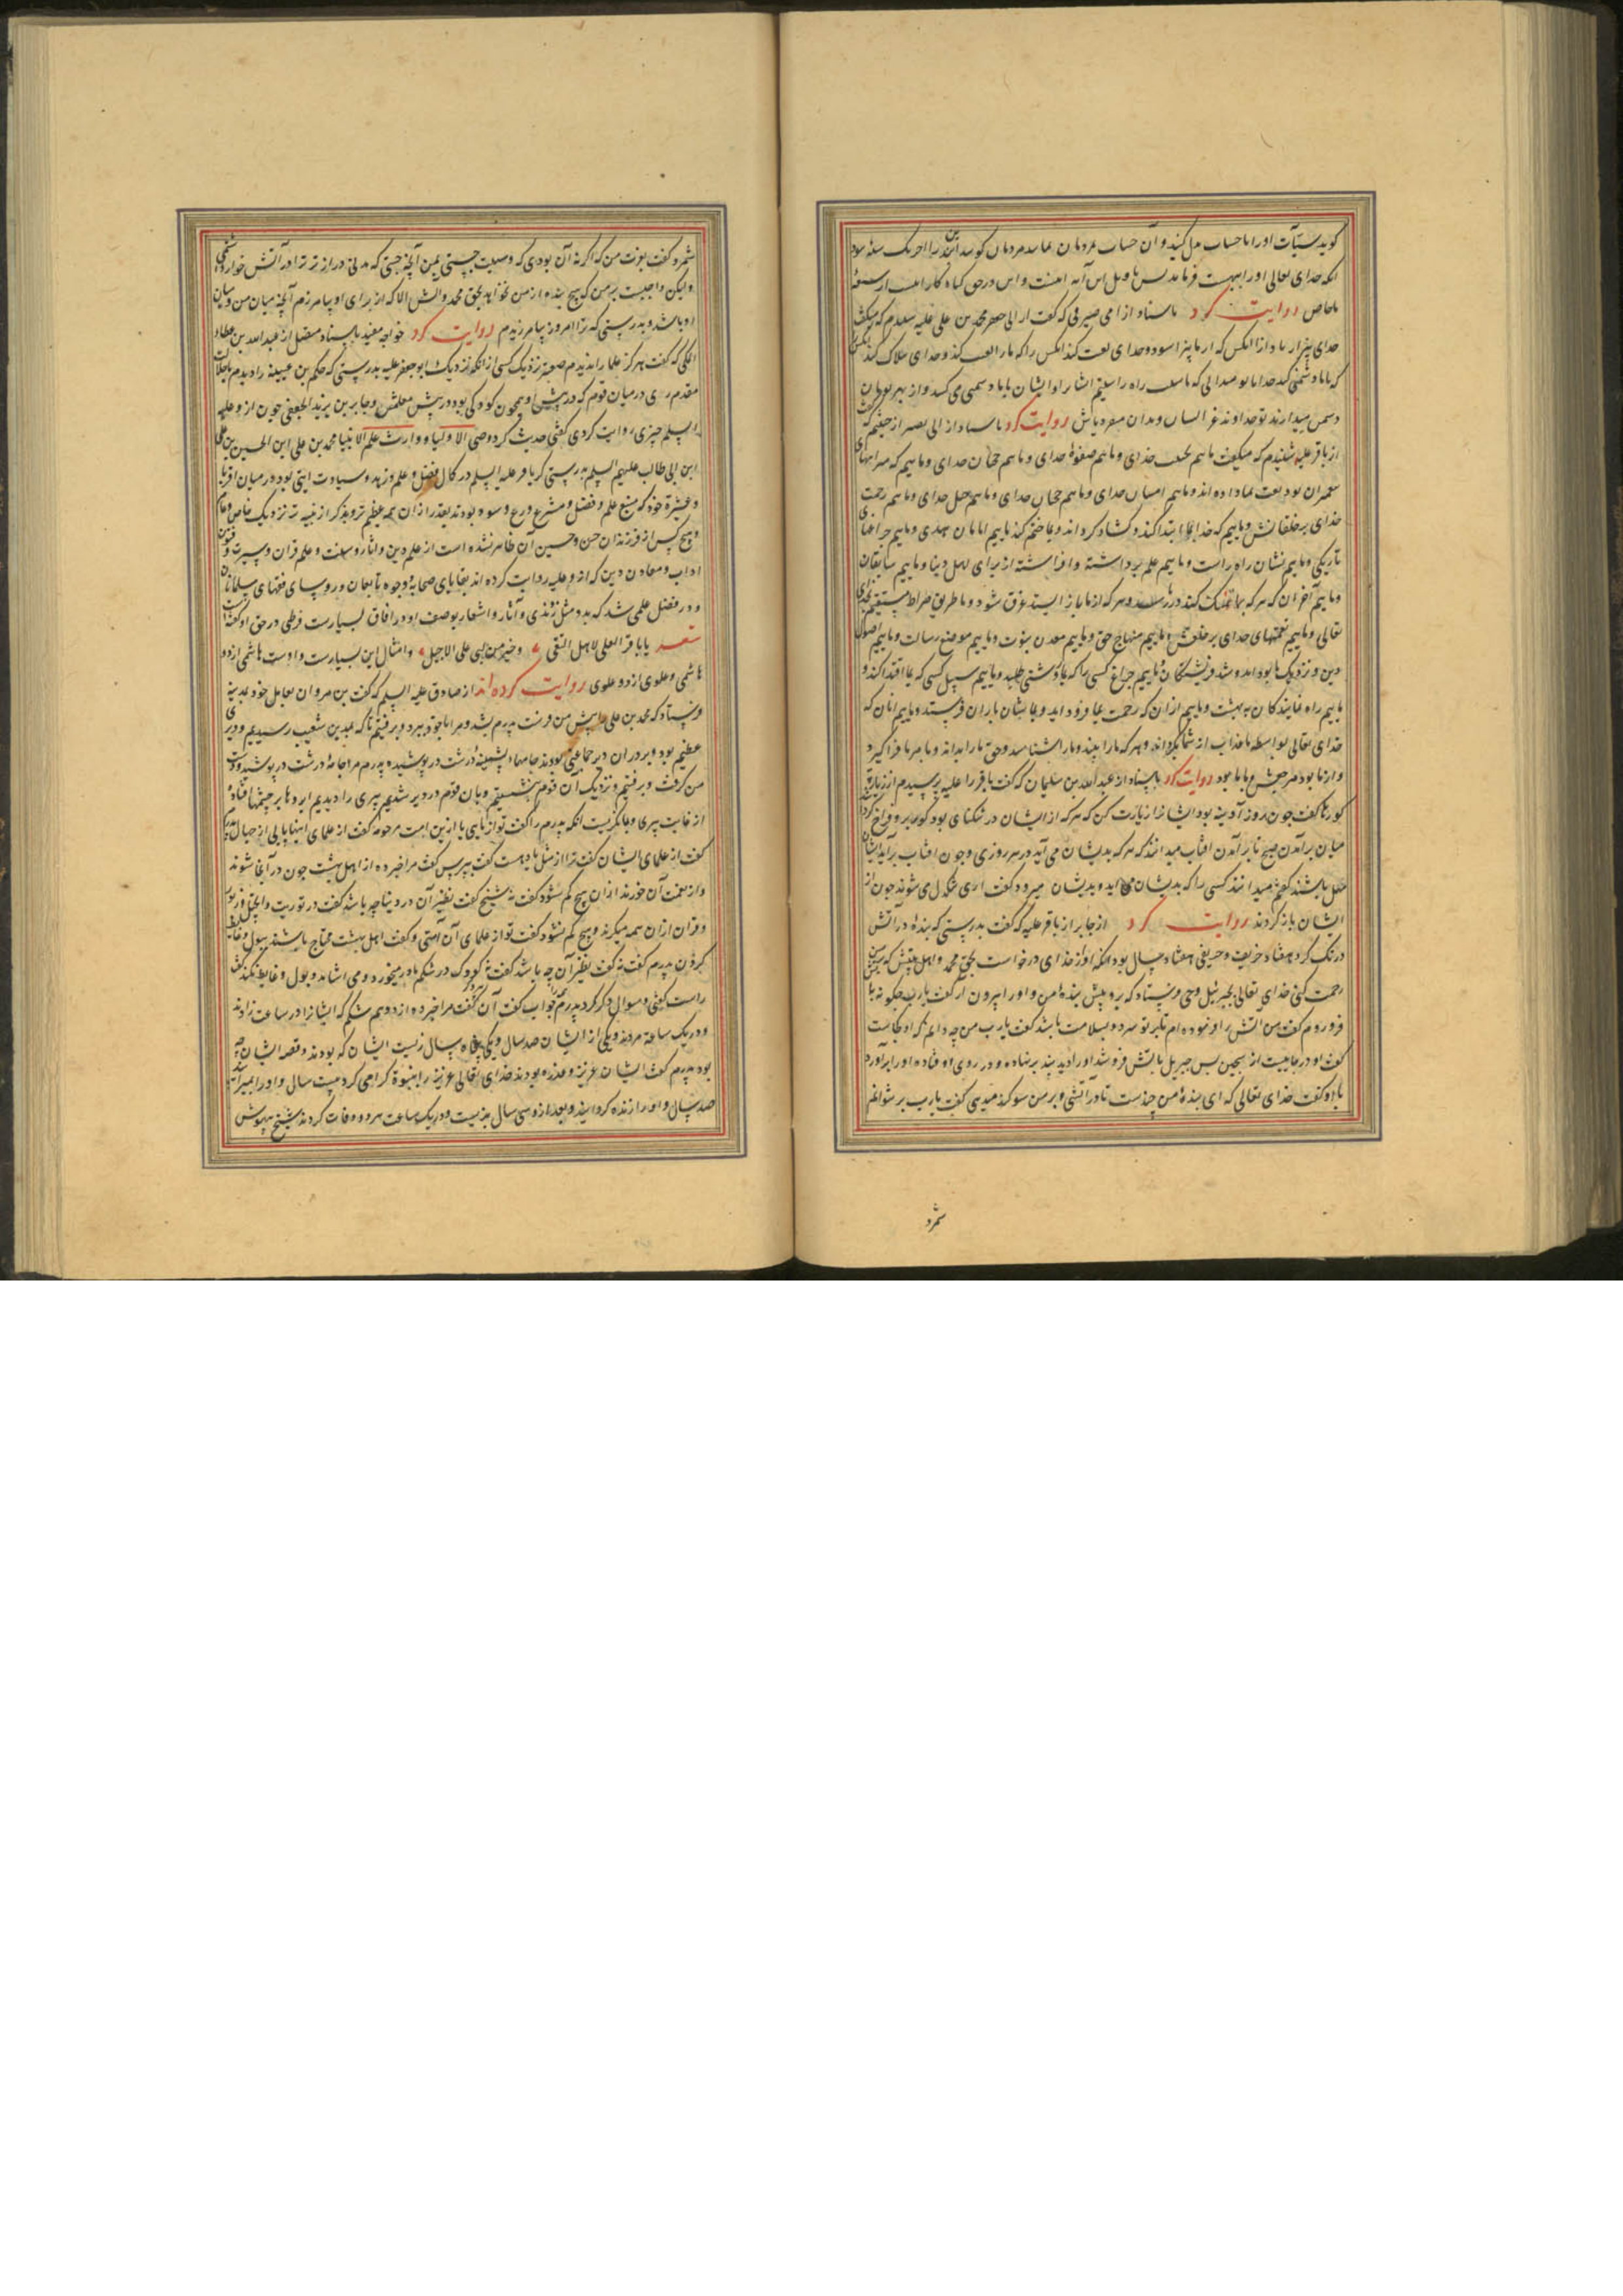 کوید سیآت اورا با حساب بدل کنید و آن حساب مردمان
انکه خدای تعالی اورا ببهشت فرماید
ماخاص روایت کرد باسناد از ابی صیرفی که گفت از ابی جعفر محمد بن علی علیه شنیدم که میگفت
خدای بیزار باد از انکس که از ما بیزار شود و خدای لعنت کند انکس را که ما را لعنت کند و خدای هلاک کند
که با ما دشمنی کند خدایا تو میدانی که ما سبب راه راستیم ایشان را و ایشان با ما دشمنی می کنند و از بهر تو
دشمن میدارند تو خداوند روایت کرد باسناد از ابی بصیر از خیثمه که گفت
از باقر علیه شنیدم که میگفت ماییم جنب خدای و ماییم صفوهٔ خدای و ماییم که میراثهای
پیغمبران بودیعت بما داده اند و ماییم امینان خدای و ماییم حجتان خدای و ماییم حبل خدای و ماییم رحمت
خدای بر خلقانش و ماییم که خدای بما ابتدا کند و بما ختم کند ماییم امامان هدی و ماییم چراغهای
تاریکی و ماییم نشان راه راست و ماییم علم برداشته و افراشته از برای اهل دنیا و ماییم سابقان
و ماییم آخران که هر که بما تمسک کند در رسد و هر که از ما باز ایستد غرق شود و ما طریق صراط مستقیم خدای
تعالی و ماییم نعمتهای خدای بر خلقش و ماییم منهاج حق و ماییم معدن نبوت و ماییم موضع رسالت و ماییم اصول
دین و نزدیک ما بود آمد و شد فریشتگان و ماییم چراغ کسی را که بما روشنی طلبد و ماییم سبیل کسی که بما اقتدا کند و
ماییم راه نمایندکان به بهشت و ماییم از آن که رحمت بما فرود آید و بما بیشان باران فرستد و ماییم آنان که
خدای تعالی بواسطه ما عذاب از شما بگرداند و هر که ما را ببیند و ما را بشناسد و حق ما را بداند و با امر ما فرا گیرد
و از ما بود مرجعش با ما بود روایت کرد باسناد از عبدالله بن سلیمان که گفت باقر را علیه پرسیدم از زیارة
گورها گفت چون روز آدینه بود ایشانرا زیارت کن که هر که از ایشان در تنگنای بود گور برو فراخ گردد
میان برآمدن صبح تا برآمدن افتاب میدانند که هر که بدیشان می آید در هر روزی و چون افتاب برآید ایشان
باشند گفتم میدانند کسی را که بدیشان می آید و بدیشان میرود گفت آری و تنگدل می شوند چون از
ایشان باز گردند روایت کرد از جابر از باقر علیه که گفت بدرستی که بنده در آتش
درنگ کرد هفتاد خریف و خریفی هفتاد سال بود انکه او از خدای درخواست بحق محمد و اهل بیتش که بر من
رحمت کنی خدای تعالی بجبرئیل وحی فرستاد که برو پیش بندهٔ من و اورا بیرون آر گفت یارب چگونه با
فرو روم گفت من آتش را فرموده ام تا بر تو سرد و سلامت باشد گفت یارب من چه دانم که او کجاست
گفت او در چاهیست از سجین پس جبریل بآتش فرو شد اورا دید پند بر نهاده و در روی او فتاده اورا برآورد
با او گفت خدای تعالی که ای بندهٔ من چندست تا در آتشی و بر من سوگند میدهی گفت یارب بر نتوانم
شمرد
شمرد گفت بعزت من که اگر نه آن بودی که وسیلت جستی بمن آنچه جستی که مدتی دراز تر ترا در آتش خوار داشتمی
ولیکن واجبست بر من که هیچ بنده از من نخواهد بحق محمد و آلش الا که از برای او بیامرزم آنچه میان من و میان
او باشد و بدرستی که ترا امروز بیامرزیدم روایت کرد خواجه مفید باسناد متصل از عبدالله بن عطاء
المکی که گفت هرگز علما را ندیدم صغیرتر نزدیک کسی از انکه نزدیک ابو جعفر علیه بدرستی که حکم بن عیینه را دیدم با جلالت
مقدم وی در میان قوم که در پیش او همچون کودکی بود در پیش معلمش و جابر بن یزید الجعفی چون از و علیه
السلم چیزی روایت کردی گفتی حدیث کرد وصی الاولیا و وارث علم الانبیا محمد بن علی ابن الحسین بن علی
ابن ابی طالب علیهم السلم بدرستی که باقر علیه السلم در کمال فضل و علم و زهد و سیادت آیتی بود در میان اقربا
و عشیرة خود که منبع علم و فضل و مشرع ورع و سود بودند
و هیچ کس از فرزندان حسن و حسین آن ظاهر نشده است از علم دین و آثار و سنت و علم قران و سیرت و فنون
اداب و معادن دین که از و علیه روایت کرده اند بقایای صحابه و وجوه تابعان و روسای فقهای مسلمانان
و در فضل علمی شد که بدو مثل زدندی و آثار و اشعار بوصف او در افاق بسیارست قرظی در حق او گفته است
شعر یا باقر العلم لاهل التقی و خیر من لبی علی الاجبل و امثال این بسیارست و اوست هاشمی از دو
هاشمی و علوی از دو علوی روایت کرده اند از صادق علیه السلم که گفت بن مروان بعامل خود بمدینه
فرستاد که محمد بن علی را پیش من فرست پدرم بشد و مرا با خود ببرد و برفتیم تا که بمدین شعیب رسیدیم و دیری
عظیم بود و بر در آن دیر جماعتی بودند جامهاء پشمینهٔ درشت در پوشیده پدرم مرا جامهٔ درشت در پوشید و دست
من گرفت و برفتیم و نزدیک آن قوم بنشستیم و با آن قوم در دیر شدیم پیری را دیدیم ابروها بر چشمها فتاده
از غایت پیری و بما نگریست انکه پدرم را گفت تو از مایی یا ازین امت مرحومه گفت از علمای اینها یا از جهال پدرم
گفت از علمای ایشان گفت ترا از مسئله یاد هست گفت بپرس گفت مرا خبر ده از اهل بهشت چون در آنجا شوند
و از نعمت آن خورند از آن هیچ کم شود گفت نه شیخ گفت نظیر آن در دنیا چه باشد گفت در توریت و انجیل و زبور
و قران از آن همه میگیرند و هیچ کم نشود گفت تو از علمای آن امتی و گفت اهل بهشت محتاج باشند ببول و غایط
کردن پدرم گفت نه گفت نظیر آن چه باشد گفت نه کودک در شکم مادر میخورد و می اشامد و بول و غایط نکند گفت
راست گفتی و سوال دیگر کرد پدرم جواب گفت آن گفت مرا خبر ده از دو هم شکم که ایشانرا در ساعت زادند
و در یک ساعة مردند و یکی از ایشان صد سال و یکی پنجاه سال زیست ایشان که بودند و قصه ایشان چه
بود پدرم گفت ایشان عزیر و عذره بودند خدای تعالی عزیر را بنبوة گرامی کرد بیست سال و اورا بمیرانید
صد سال و اورا زنده گردانید و بعد از و سی سال بزیست و در یک ساعت هر دو وفات کردند شیخ بیهوش